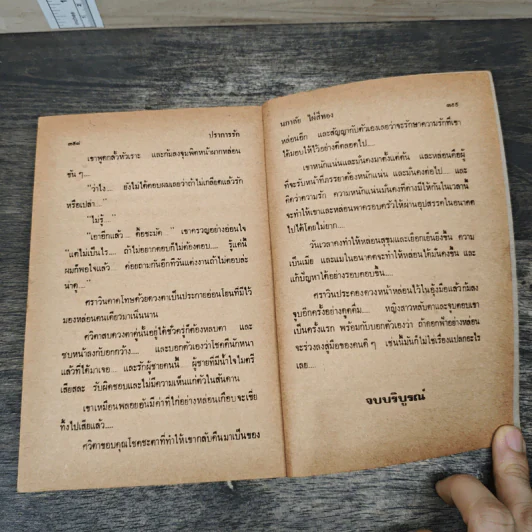 ๓๕๔ ปราการรัก
เขาพูดกลั้วหัวเราะ และก้มลงจุมพิตหน้าผากหล่อน
ซ้ำ ๆ...
"ว่าไง... ยังไม่ได้ตอบผมเลยว่าถ้าไม่เกลียดแล้วรัก
หรือเปล่า..."
"ไม่รู้..."
"เอาอีกแล้ว ดื้อชะมัด" เขาครวญอย่างอ่อนใจ
"แต่ไม่เป็นไร... ถ้าไม่อยากตอบก็ไม่ต้องตอบ... รู้แค่นี้
ผมก็พอใจแล้ว... ค่อยถามกันอีกทีวันแต่งงานถ้าไม่ตอบล่ะ
น่าดู..."
ตราวินคาดโทษด้วยดวงตาเป็นประกายอ่อนโยนที่มีไว้
มองหล่อนคนเดียวมาเนิ่นนาน
ศวิตาสบดวงตาคู่นั้นอยู่ได้ชั่วครู่ก็ต้องหลบตา และ
ซบหน้าลงกับอกกว้าง... และบอกตัวเองว่าโชคดีนักหนา
แล้วที่ได้มาเจอ... และรักผู้ชายคนนี้ ผู้ชายที่มีน้ำใจไมตรี
เสียสละ รับผิดชอบและไม่มีความเห็นแก่ตัวในสันดาน
เขาเหมือนพลอยอันมีค่าที่ไก่อย่างหล่อนเกือบจะเขี่ย
ทิ้งไปเสียแล้ว....
ศวิตาขอบคุณโชคชะตาที่ทำให้เขากลับคืนมาเป็นของ
นภาลัย ไผ่สีทอง ๓๕๕
หล่อนอีก และสัญญากับตัวเองเลยว่าจะรักษาความรักที่เขา
ได้มอบให้ไว้อย่างดีตลอดไป....
เขาหนักแน่นและมั่นคงมาตั้งแต่ต้น และหล่อนคือผู้
ที่จะรับหน้าที่ภรรยาต้องหนักแน่น และมั่นคงต่อไป... และ
คิดว่าความรัก ความหนักแน่นมั่นคงที่ต่างมีให้กันในเวลานี้
จะทำให้เขาและหล่อนพาครอบครัวให้ผ่านอุปสรรคในอนาคต
ไปได้โดยไม่ยาก....
วันเวลาคงทำให้หล่อนสุขุมและเยือกเย็นยิ่งขึ้น ความ
เป็นเมีย และแม่ในอนาคตจะทำให้หล่อนได้มั่นคงขึ้น และ
แก้ปัญหาได้อย่างรอบคอบขึ้น....
ตราวินประคองดวงหน้าหล่อนไว้ในอุ้งมือแล้วก้มลง
จูบอีกครั้งอย่างดูดดื่ม... หญิงสาวหลับตาและจูบตอบเขา
เป็นครั้งแรก พร้อมกับบอกตัวเองว่า ถ้าดอกฟ้าอย่างหล่อน
จะร่วงลงสู่มือของคนดี ๆ เช่นนี้มันก็ไม่ใช่เรื่องแปลกอะไร
เลย....
จบบริบูรณ์